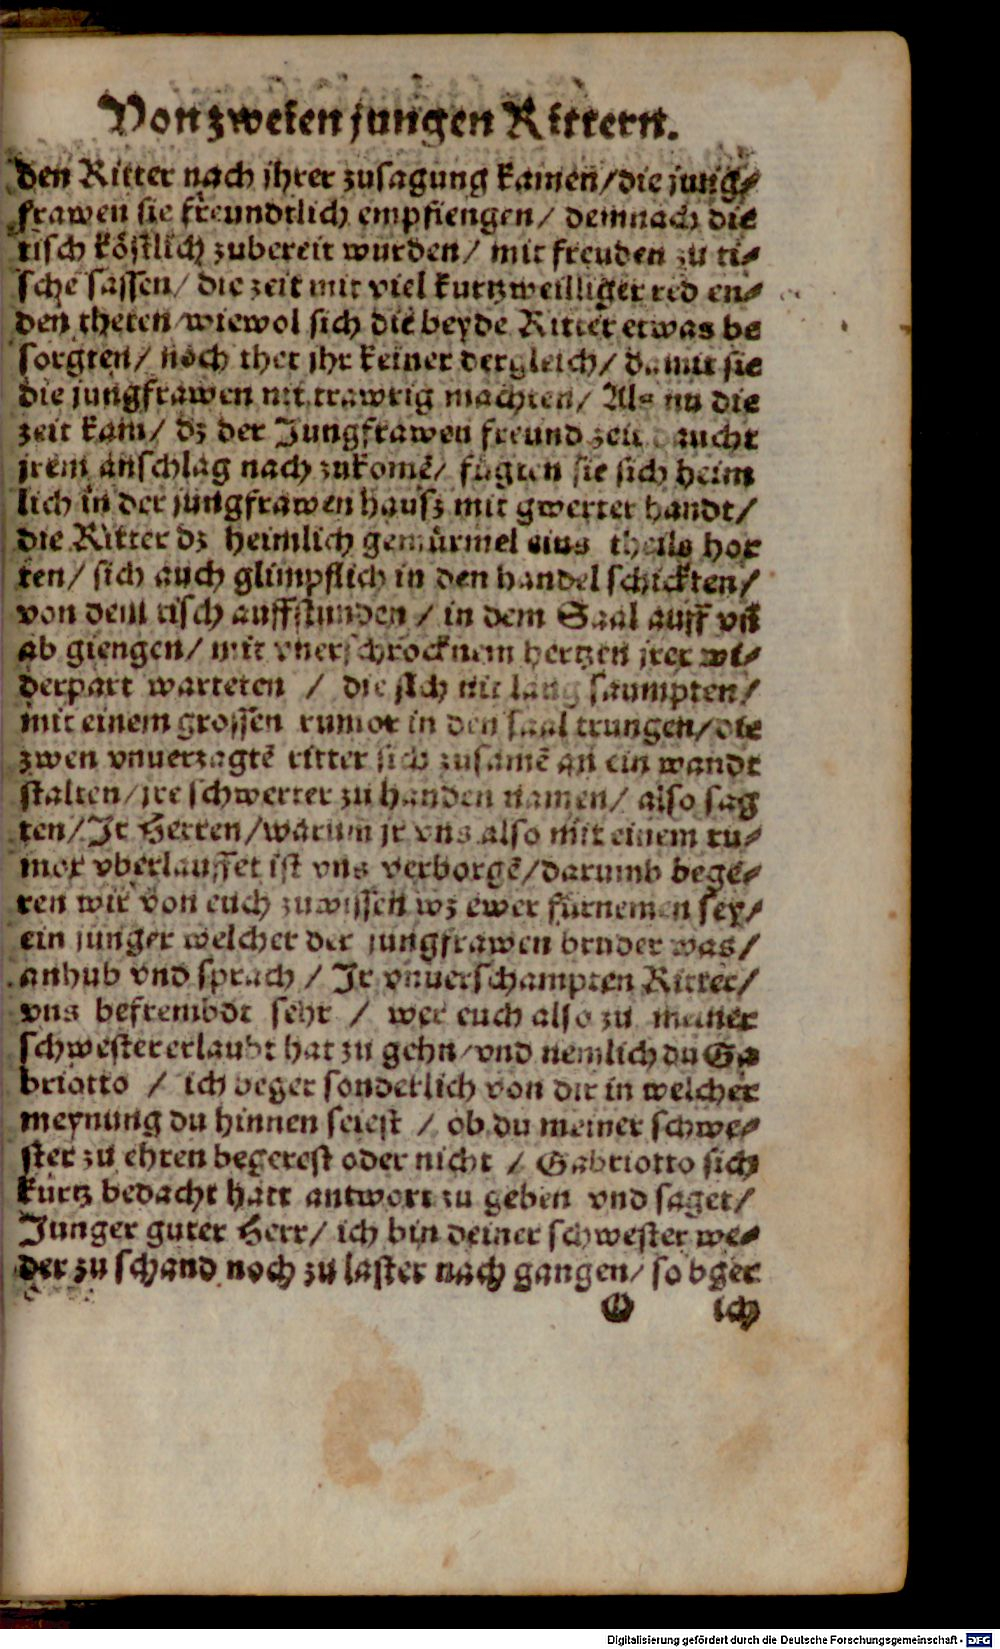 Von zweien jungen Rittern.
den Ritter nach jhrer zusagung kamen/die jung-
frawen sie freundtlich empfiengen/ demnach die
tisch köstlich zubereit wurden/ mit freuden zu ti-
sche sassen/ die zeit mit viel kurtzweilliger red en-
den theten/wiewol sich die beyde Ritter etwas be
sorgten/ noch thet jhr keiner dergleich/ damit sie
die jungfrawen nit trawrig machten/ Als nu die
zeit kam/ dz der Jungfrawen freund zeit daucht
jrem anschlag nach zukomē/ fügten sie sich heim
lich in der jungfrawen hausz mit gwerter handt/
die Ritter dz heimlich gemürmel eins theils hor
ten/ sich auch glimpflich in den handel schickten/
von dem tisch auffstunden / in dem Saal auff vñ
ab giengen/ mit vnerschrocknem hertzen jrer wi-
derpart warteten / die sich nit lang saumpten/
mit einem grossen rumor in den saal trungen/die
zwen vnuerzagtē ritter sich zusamē an ein wandt
stalten/jre schwerter zu handen namen/ also sag
ten/Jr Herren/warum jr vns also mit einem ru-
mor vberlauffet ist vns verborgē/darumb bege-
ren wir von euch zuwissen wz ewer fürnemen sey/
ein junger welcher der jungfrawen bruder was/
anhub vnd sprach / Jr vnuerschampten Ritter/
vns befrembdt sehr / wer euch also zu meiner
schwester erlaubt hat zu gehn/vnd nemlich du Ga
briotto / ich beger sonderlich von dir in welcher
meynung du hinnen seiest / ob du meiner schwe-
ster zu ehren begerest oder nicht / Gabriotto sich
kurtz bedacht hatt antwort zu geben vnd saget/
Junger guter Herr/ ich bin deiner schwester we-
der zu schand noch zu laster nach gangen/ so bger
O ich
Digitalisierung gefördert durch die Deutsche Forschungsgemeinschaft - DFG